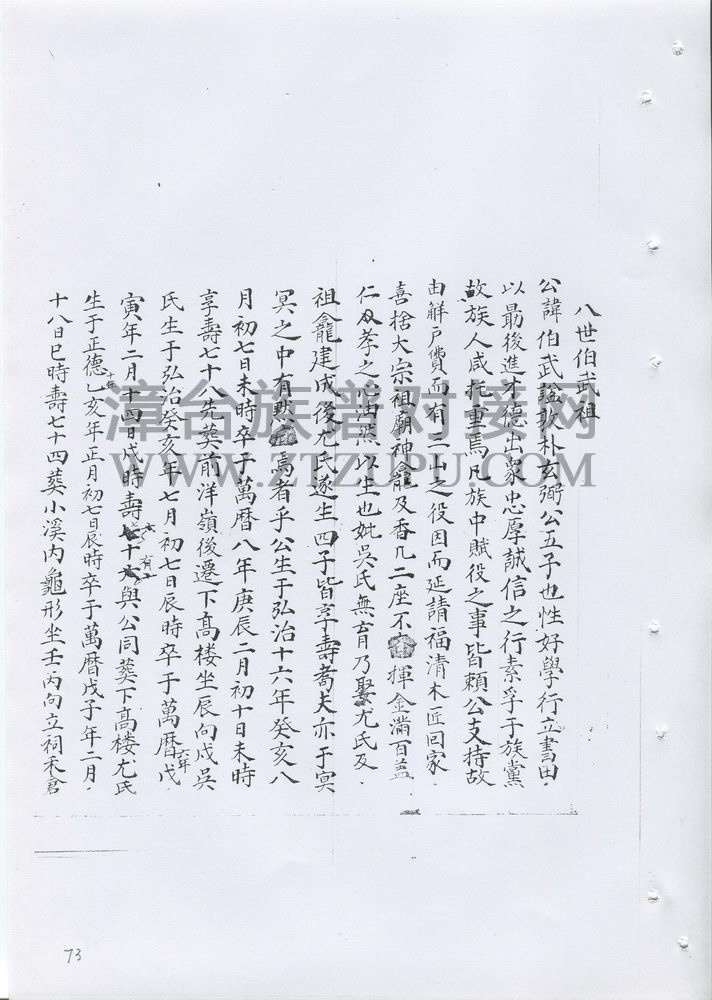 八世伯武祖
公諱伯武諡敦朴玄弼公五子也性好學行立書田
以最後進才德出衆忠厚誠信之行素孚于族黨
故族人咸托重焉凡族中賦役之事皆賴公支持故
由觧戶費而有三山之役因而延請福清木匠回家
喜捨大宗祖廟神龕及香几二座不 揮金滿百蓋
仁孝之心油然以生也妣吳氏無育乃娶尤氏及
祖龕建成後尤氏遂生四子皆享壽耆夫亦于冥
冥之中有默 焉者乎公生于弘治十六年癸亥八
月初七日未時卒于萬曆八年庚辰二月初十日未時
享壽七十八先葬前洋嶺後遷下髙楼坐辰向戌吳
氏生于弘治癸亥年七月初七日辰時卒于萬曆六年戊
寅年二月十四日戌時壽七十有六與公同葬下髙楼尤氏
生于正德十年乙亥年正月初七日辰時卒于萬曆戊子年二月
十八日巳時壽七十四葬小溪内龜形坐壬丙向立祠禾倉
73
漳台族谱对接网
WWW.ZTZUPU.COM